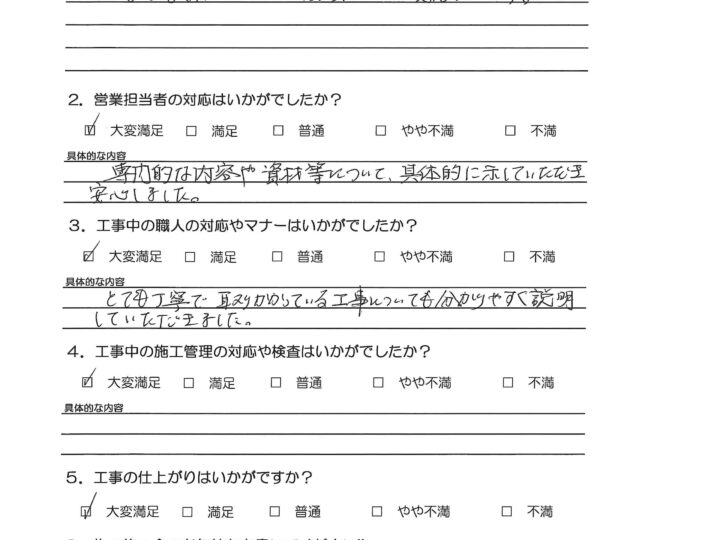 2．営業担当者の対応はいかがでしたか？
☑ 大変満足 □ 満足 □ 普通 □ やや不満 □ 不満
具体的な内容
専門的な内容や資材等について、具体的に示していただき
安心しました。
3．工事中の職人の対応やマナーはいかがでしたか？
☑ 大変満足 □ 満足 □ 普通 □ やや不満 □ 不満
具体的な内容
とても丁寧で取りかかっている工事についても分かりやすく説明
していただきました。
4．工事中の施工管理の対応や検査はいかがでしたか？
☑ 大変満足 □ 満足 □ 普通 □ やや不満 □ 不満
具体的な内容
5．工事の仕上がりはいかがですか？
☑ 大変満足 □ 満足 □ 普通 □ やや不満 □ 不満